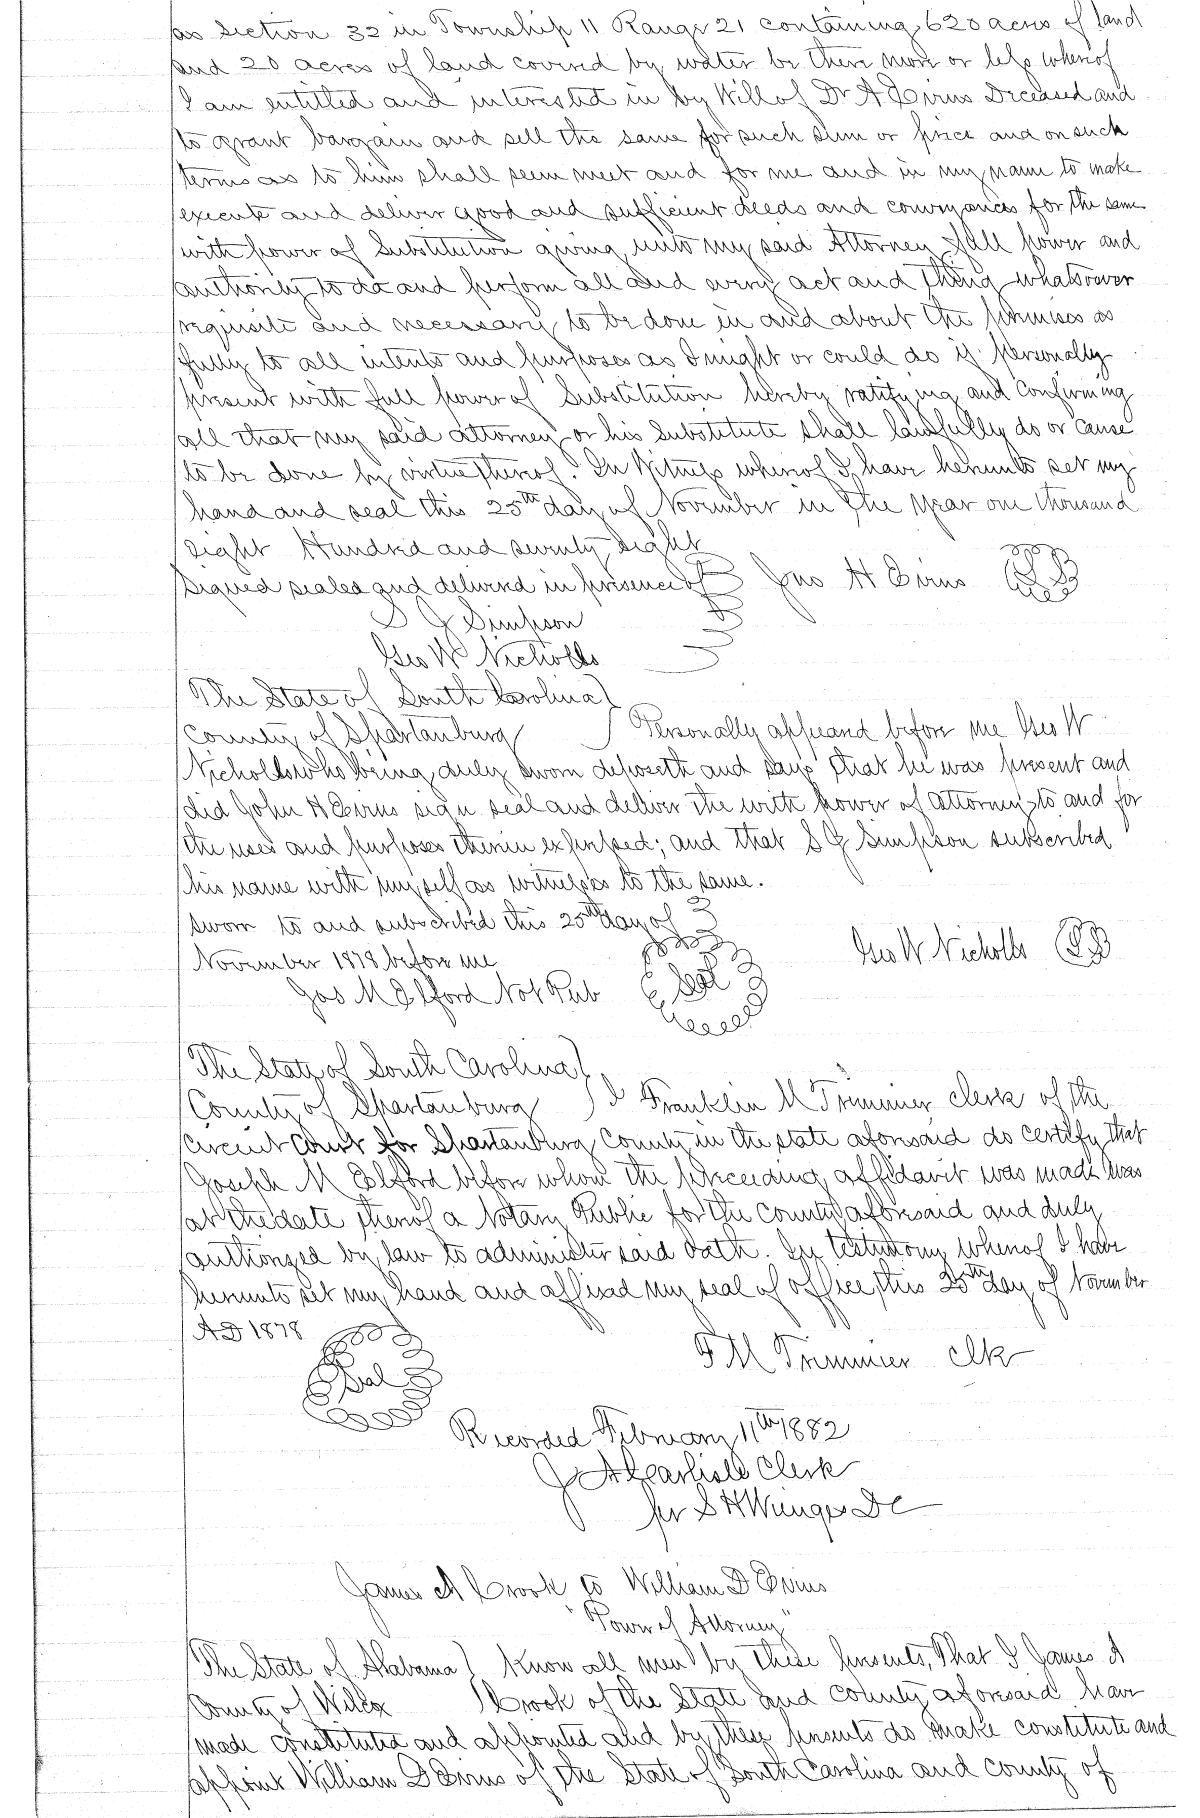 as Section 32 in Township 11 Range 21 containing 620 acres of land
and 20 acres of land covered by water be there more or less whereof
I am entitled and interested in by Will of Dr A Evins Deceased and
to grant bargain and sell the same for such sum or price and on such
terms as to him shall seem meet and for me and in my name to make
execute and deliver good and sufficient deeds and conveyances for the same
with power of Substitution giving unto my said Attorney full power and
authority to do and perform all and every act and thing whatsoever
requisite and necessary to be done in and about the premises as
fully to all intents and purposes as I might or could do if personally
present with full power of Substitution hereby ratifying and confirming
all that my said attorney or his Substitute shall lawfully do or cause
to be done by virtue thereof. In Witness whereof I have hereunto set my
hand and seal this 25th day of November in the year one thousand
eight Hundred and seventy eight
Signed sealed and delivered in presence of Jno H Evins LS
S J Simpson
Geo W Nicholls
The State of South Carolina
County of Spartanburg Personally appeared before me Geo W
Nicholls who being duly sworn deposeth and says that he was present and
did John H Evins sign seal and deliver the with power of attorney to and for
the uses and purposes therein expressed; and that S J Simpson subscribed
his name with myself as witnesses to the same.
Sworn to and subscribed this 25th day of
November 1878 before me Geo W Nicholls LS
Jos M Elford Not Pub Seal
The State of South Carolina
County of Spartanburg I Franklin M Trimmier Clerk of the
Circuit Court for Spartanburg County in the state aforesaid do certify that
Joseph M Elford before whom the preceeding affidavit was made was
at the date thereof a Notary Public for the county aforesaid and duly
authorized by law to administer said oath. In testimony whereof I have
hereunto set my hand and affixed my seal of office this 25th day of November
AD 1878
Seal F M Trimmier Clk
Recorded February 11th 1882
J A Carlisle Clerk
per S H DC
James A Crook to William D Evins
"Power of Attorney"
The State of Alabama Know all men by these presents, That I James A
County of Wilcox Crook of the State and County aforesaid have
made constituted and appointed and by these presents do make constitute and
appoint William D Evins of the State of South Carolina and county of